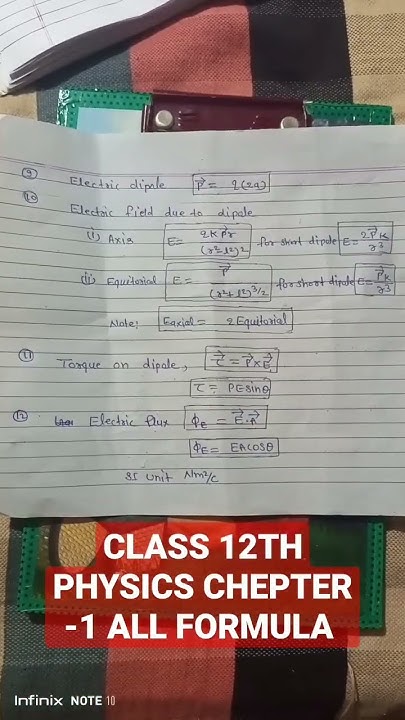 ⑨ Electric dipole P⃗ = q(2a)
⑩ Electric field due to dipole
(i) Axis E = 2KPr/(r²-l²)² for short dipole E = 2P⃗K/r³
(ii) Equitorial E = P⃗/(r²+l²)^3/2 for short dipole E = P⃗K/r³
Note: Eaxial = 2Equitorial
⑪ Torque on dipole, τ⃗ = P⃗×E⃗
τ = PEsinθ
⑫ Electric flux ϕE = E⃗.A⃗
ϕE = EACOSθ
SI unit Nm²/C
CLASS 12TH
PHYSICS CHEPTER
-1 ALL FORMULA
Infinix NOTE 10